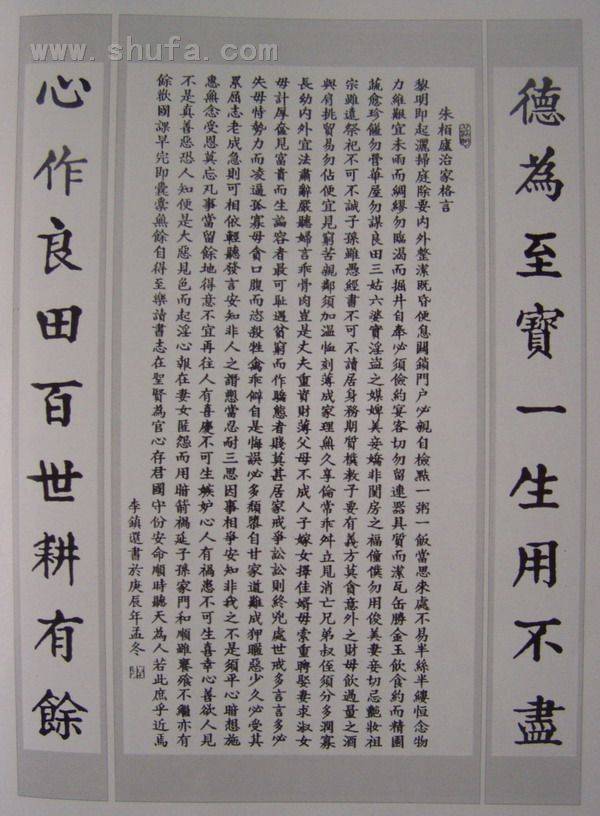 www.shufa.com
德為至寶一生用不盡
朱栢廬治家格言
黎明即起灑掃庭除要內外整潔既昏便息關鎖門戶必親自檢點一粥一飯當思來處不易半絲半縷恒念物
力維艱宜未雨而綢繆勿臨渴而掘井自奉必須儉約宴客切勿留連器具質而潔瓦缶勝金玉飲食約而精園
蔬愈珍饈勿營華屋勿謀良田三姑六婆實淫盜之媒婢美妾嬌非閨房之福僮僕勿用俊美妻妾切忌艷妝祖
宗雖遠祭祀不可不誠子孫雖愚經書不可不讀居身務期質樸教子要有義方莫貪意外之財毋飲過量之酒
與肩挑貿易勿佔便宜見窮苦親鄰須加溫恤刻薄成家理無久享倫常乖舛立見消亡兄弟叔侄須分多潤寡
長幼內外宜法肅辭嚴聽婦言乖骨肉豈是丈夫重資財薄父母不成人子嫁女擇佳婿毋索重聘娶妻求淑女
毋計厚奩見富貴而生諂容者最可恥遇貧窮而作驕態者賤莫甚居家戒爭訟訟則終兇處世戒多言言多必
失毋恃勢力而凌逼孤寡毋貪口腹而恣殺牲禽乖僻自是悔誤必多頹墮自甘家道難成狎暱惡少久必受其
累屈志老成急則可相依輕聽發言安知非人之譖愬當忍耐三思因事相爭安知非我之不是須平心暗想施
惠無念受恩莫忘凡事當留餘地得意不宜再往人有喜慶不可生嫉妒心人有禍患不可生喜幸心善欲人見
不是真善惡恐人知便是大惡見色而起淫心報在妻女匿怨而用暗箭禍延子孫家門和順雖饔飧不繼亦有
餘歡國課早完即囊橐無餘自得至樂讀書志在聖賢為官心存君國守份安命順時聽天為人若此庶乎近焉
李鎮選書於庚辰年孟冬
心作良田百世耕有餘